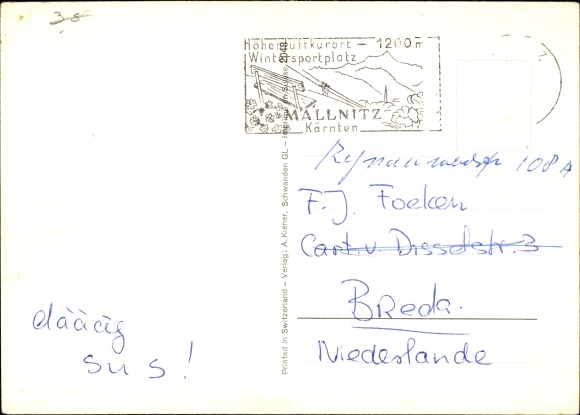 38
Höhenluftkurort – 1200m
Wintersportplatz
MALLNITZ
Kärnten
Printed in Switzerland – Verlag: A. Kiener, Schwanden GL – Imprimé en Suisse 2048
108A
F.J. Foeken
Cart. v. Disselstr. 3
Breda.
Niederlande
dääàg
sus!